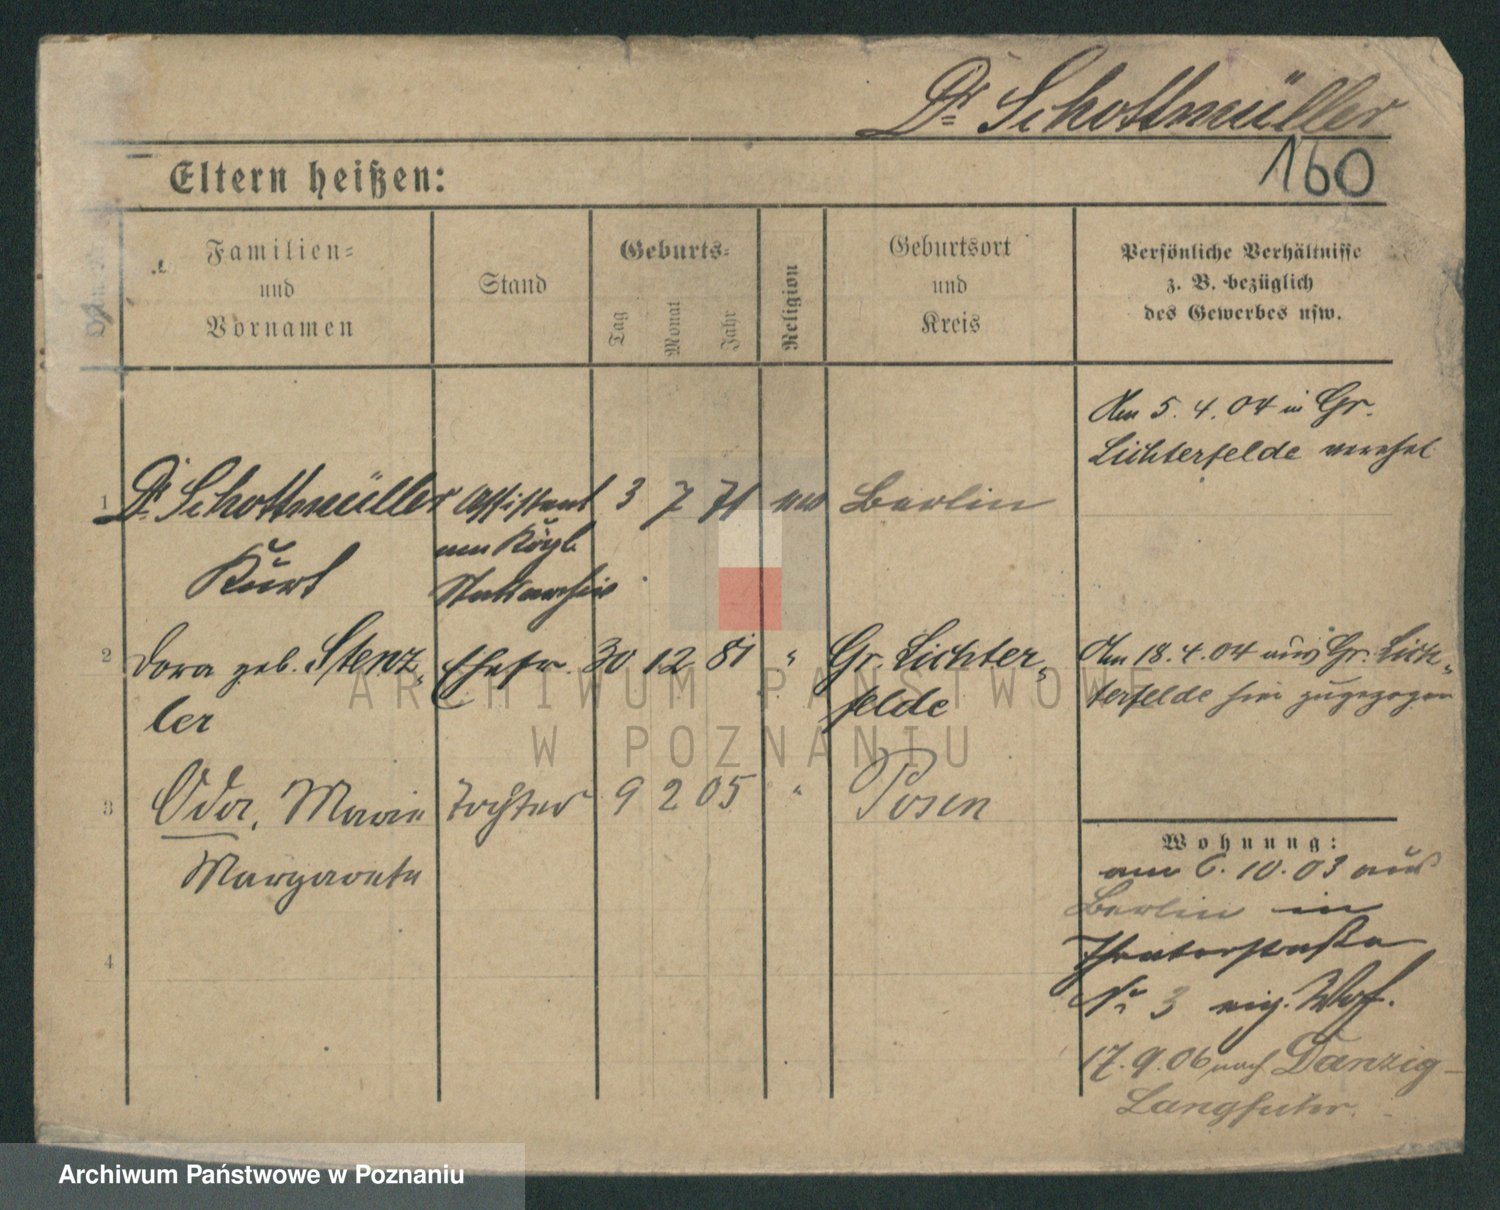 Dr Schottmüller
160
Eltern heißen:
Familien= und Vornamen
Stand
Geburts=
Tag
Monat
Jahr
Religion
Geburtsort und Kreis
Persönliche Verhältnisse z. B. bezüglich des Gewerbes usw.
Am 5. 4. 04 in Gr.
Lichterfelde verehel
1 Dr Schottmüller Assistent 3 7 71 ev Berlin
Kurt am Kögl.
Staatsarchiv
2 Dora geb. Stenz= Ehefr. 30 12 81 " Gr. Lichter= Am 18. 4. 04 aus Gr. Lich=
ler felde terfelde hier zugezogen
3 Oda, Marie Tochter 9 2 05 " Posen
Margarete
4
Wohnung:
am 6. 10. 03 aus
Berlin in
Theaterstraße
No 3 eig. Woh.
17. 9. 06 nach Danzig-
Langfuhr.
ARCHIWUM PAŃSTWOWE
W POZNANIU
Archiwum Państwowe w Poznaniu